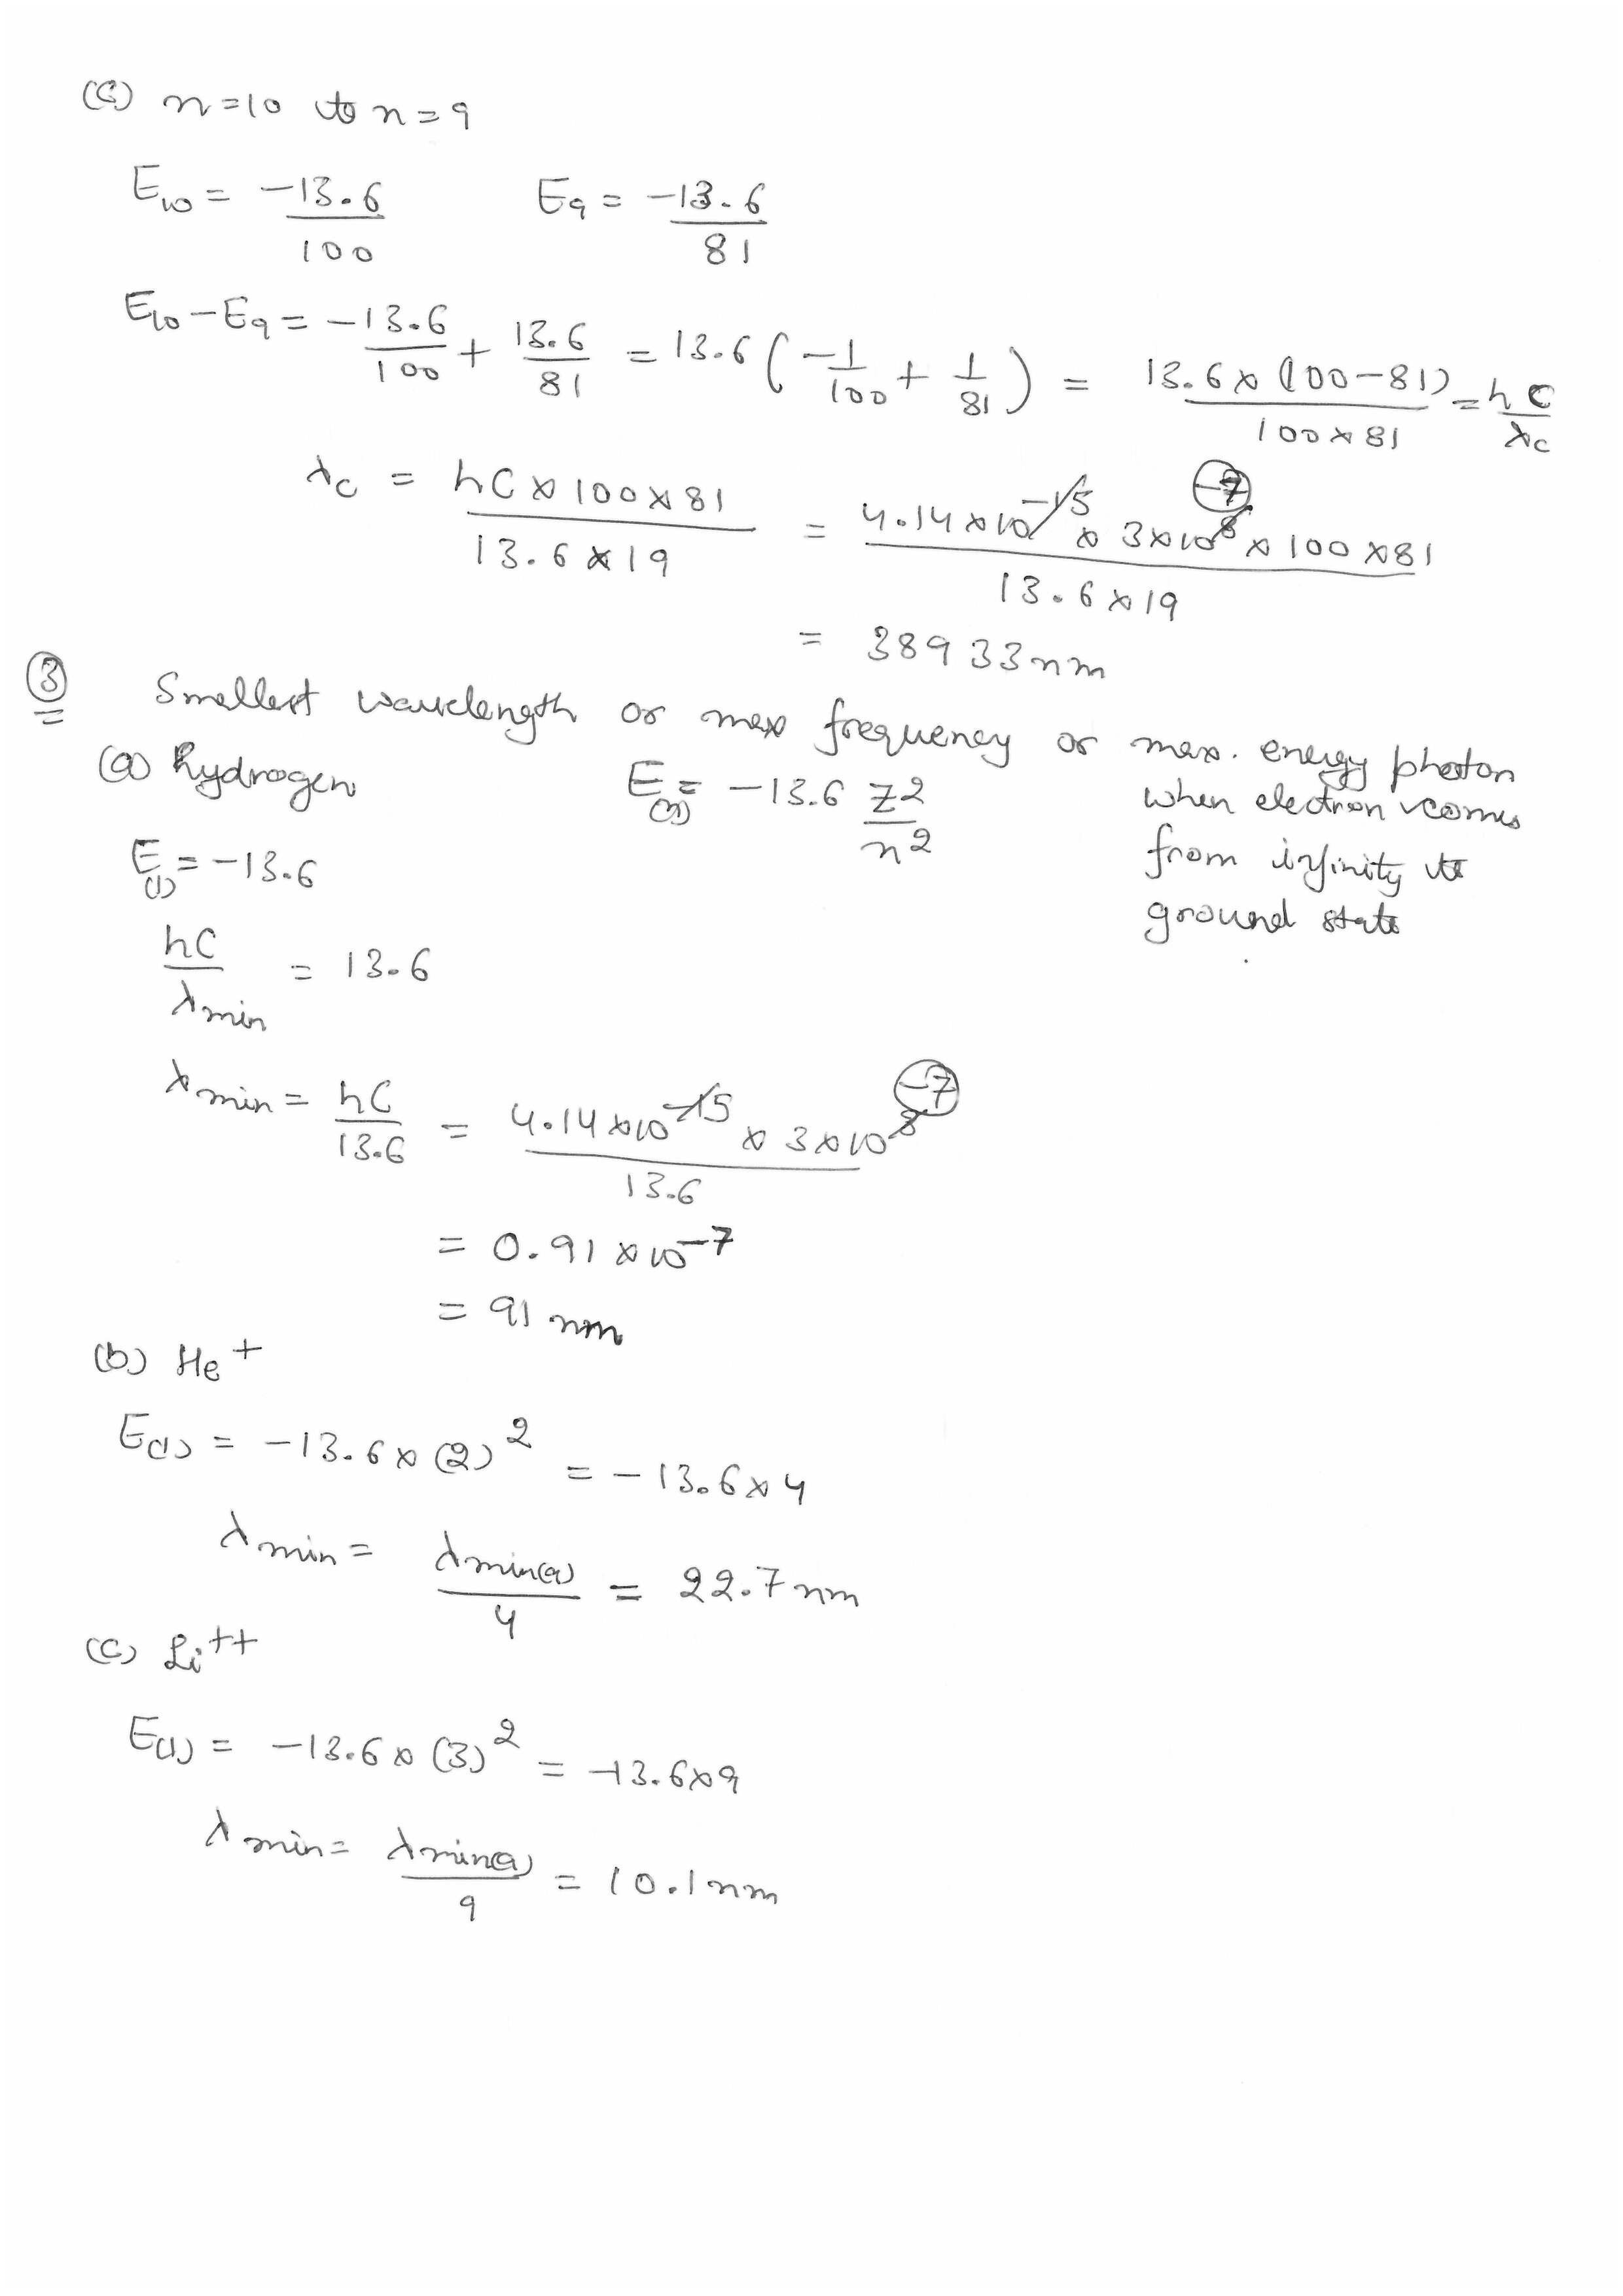 (c) n=10 to n=9
E10 = -13.6/100 E9 = -13.6/81
E10-E9 = -13.6/100 + 13.6/81 = 13.6(-1/100 + 1/81) = 13.6×(100-81)/100×81 = hC/λc
λc = hC×100×81/13.6×19 = 4.14×10^-15 × 3×10^8 × 100×81/13.6×19 -7
= 38933nm
③ Smallest wavelength or max frequency or max. energy photon
when electron comes
from infinity to
ground state
(a) hydrogen E(n) = -13.6 Z²/n²
E(1) = -13.6
hC/λmin = 13.6
λmin = hC/13.6 = 4.14×10^-15 × 3×10^8/13.6 -7
= 0.91×10^-7
= 91 nm
(b) He+
E(1) = -13.6×(2)² = -13.6×4
λmin = λmin(a)/4 = 22.7nm
(c) Li++
E(1) = -13.6×(3)² = -13.6×9
λmin = λmin(a)/9 = 10.1nm